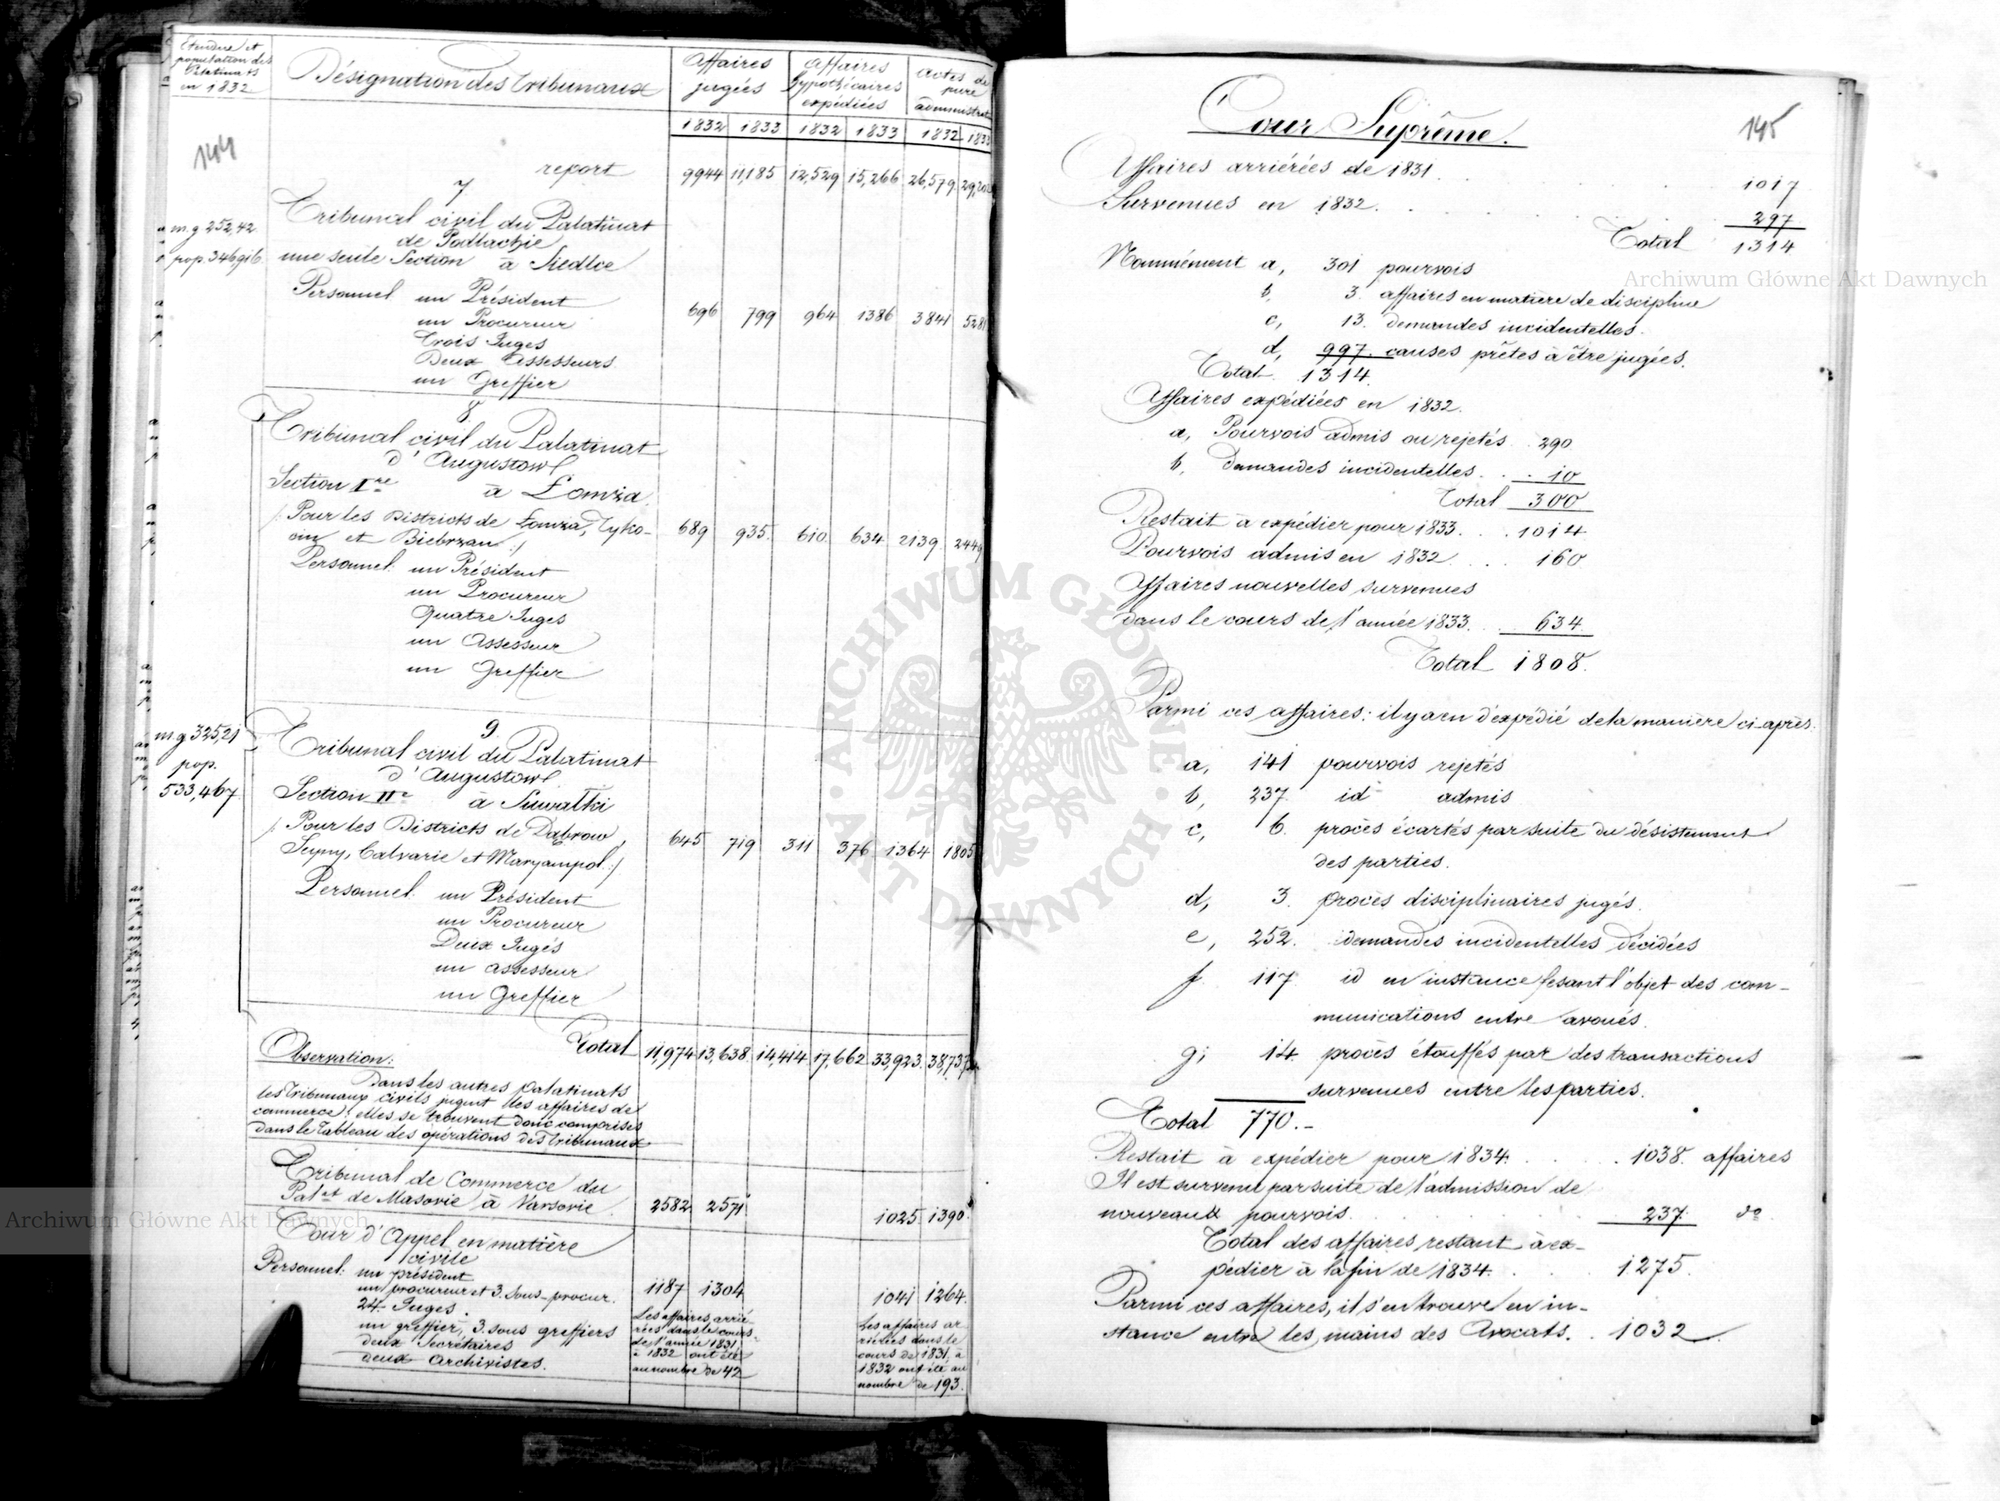 Etendue et
population des
Palatinats
en 1832
Désignation des Tribunaux
Affaires
jugées
Affaires
hypothécaires
expédiées
Actes de
pure
administrat
1832 1833 1832 1833 1832 183
144
report 9944 11,185 12,529 15,266 26,579
7
Tribunal civil du Palatinat
de Podlachie
m.g 252,42
pop. 346916
une seule Section à Siedlce
Personnel un Président
un Procureur
Trois Juges
Deux Assesseurs
un Greffier
696 799 964 1386 3841 528
8
Tribunal civil du Palatinat
d'Augustow
Section Ire à Łomża
/: Pour les Districts de Łomża, Tyko-
cin et Biebrzan :/
689 935 610 634 2139 2449
Personnel un Président
un Procureur
Quatre Juges
un Assesseur
un Greffier
m.g 325,21
pop.
533,467
9
Tribunal civil du Palatinat
d'Augustow
Section IIe à Suwałki
/: Pour les Districts de Dąbrow,
Seyny, Calvarie et Maryampol :/
645 719 311 376 1364 1805
Personnel un Président
un Procureur
Deux Juges
un assesseur
un Greffier
Total 11974 13,638 14,414 17,662 33,923 38,737
Observation:
Dans les autres palatinats
les tribunaux civils jugent les affaires de
commerce: elles se trouvent donc comprises
dans le tableau des opérations des tribunaux
Tribunal de Commerce du
Palat de Masovie à Varsovie
2582 2571 1025 1390
Cour d'Appel en matière
civile
Personnel: un président
un procureur et 3. sous-procur.
24 Juges.
un greffier, 3 sous greffiers
deux Secrétaires
deux Archivistes.
1187 1304 1041 1264
Les affaires arrié-
rées dans le cours
de l'année 1831
à 1832 ont été
au nombre de 42
Les affaires ar-
riérées dans le
cours de 1831 à
1832 ont été au
nombre de 193.
145
Cour Suprême.
Affaires arriérées de 1831. 1017
Survenues en 1832. 297
Total 1314
Nommément a, 301 pourvois
b, 3. affaires en matière de discipline
c, 13. demandes incidentelles.
d, 997. causes prêtes à être jugées.
Total 1314.
Affaires expédiées en 1832.
a, Pourvois admis ou rejetés 290
b, demandes incidentelles. 10
Total 300
Restait à expédier pour 1833. 1014
Pourvois admis en 1832. 160
Affaires nouvelles survenues
dans le cours de l'année 1833. 634
Total 1808.
Parmi ces affaires: il y a eu d'expédié de la manière ci-après.
a, 141 pourvois rejetés
b, 237. id admis
c, 6. procès écartés par suite du désistement
des parties.
d, 3. procès disciplinaires jugés.
e, 252. demandes incidentelles décidées
f. 117 id en instance fesant l'objet des com-
munications entre avoués.
g; 14. procès étouffés par des transactions
survenues entre les parties.
Total 770.-
Restait à expédier pour 1834. 1038. affaires
Il est survenu par suite de l'admission de
nouveaux pourvois. 237. do
Total des affaires restant à ex-
pédier à la fin de 1834. 1275.
Parmi ces affaires, il s'en trouve en in-
stance entre les mains des Avocats. 1032.
Archiwum Główne Akt Dawnych
Archiwum Główne Akt Dawnych
ARCHIWUM GŁÓWNE · AKT DAWNYCH ·